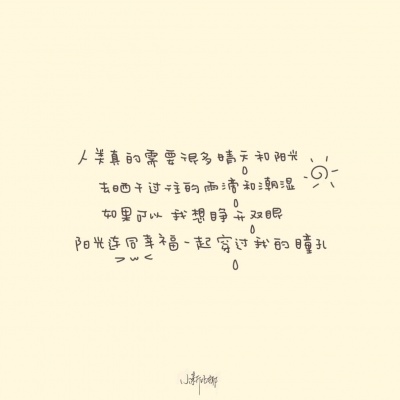 人类真的需要很多晴天和阳光
去晒干过往的雨滴和潮湿
如果可以 我想睁开双眼
阳光连同幸福一起穿过我的瞳孔
>w<